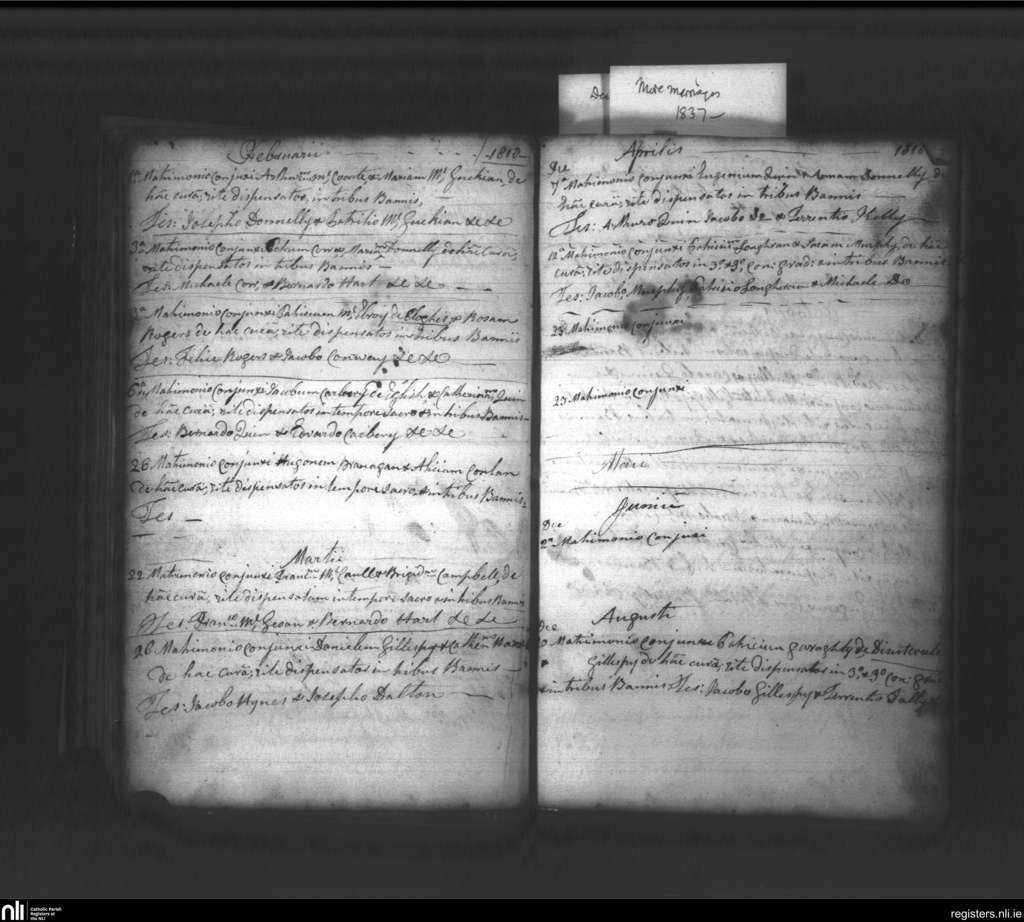 More marriages
1837 -
Februarii 1810
Matrimonio conjunxi Arthurum Mc & Mariam Mc Guckian, de
hâc curâ, rite dispensatos, in tribus Bannis,
Tes: Josepho Donnelly & Patritio Mc Guckian &c &c
3a Matrimonio conjunxi Petrum Corr & Mariam Donnelly de hâc Curâ,
rite dispensatos in tribus Bannis -
Tes: Michaele Corr, & Bernardo Hart &c &c
Matrimonio conjunxi Patricium Mc Elroy de & Rosam
Rogers de hâc curâ; rite dispensatos in tribus Bannis
Tes: Felice Rogers & Jacobo Conway &c &c
6a Matrimonio Conjunxi Jacobum Carbery de & Catherinam Quin
de hâc curâ; rite dispensatos in tempore Sacro & in tribus Bannis
Tes: Bernardo Quin & Edvardo Carbery &c &c
26 Matrimonio conjunxi Hugonem Branagan & Aliciam Conlan
de hâc curâ; rite dispensatos in tempore Sacro, & in tribus Bannis
Tes -
Martii
22 Matrimonio conjunxi Mc Caull & Brigidam Campbell, de
hâc curâ; rite dispensatam in tempore Sacro & in tribus Bannis
Tes. Mc Geoan & Bernardo Hart &c &c
26 Matrimonio conjunxi Danielem Gillespy &
de hâc curâ; rite dispensatos in tribus Bannis
Tes: Jacobo Hynes & Josepho Dalton
Aprilis 1810
Die
7a Matrimonio conjunxi Eugenium Quin & Donnelly de
hâc curâ; rite dispensatos in tribus Bannis
Tes: Arthuro Quin Jacobo Do & Terrentio Holly
12a Matrimonio conjunxi Patricium Loughran & Saram Murphy, de hâc
curâ; rite dispensatos in 3o & 3o con: grad: & in tribus Bannis
Tes: Jacobo Murphy Patricio Loughran & Michaele Do
23 Matrimonio conjunxi
23 Matrimonio conjunxi
Junii
Die
2a Matrimonio conjunxi
Augusti
Die
Matrimonio conjunxi Patricium Garaghty de &
Gillespy de hâc curâ; rite dispensatos in 3o & 3o con: grad:
& in tribus Bannis. Tes: Jacobo Gillespy & Terrentio
nli
Catholic Parish
Registers at
the NLI
registers.nli.ie